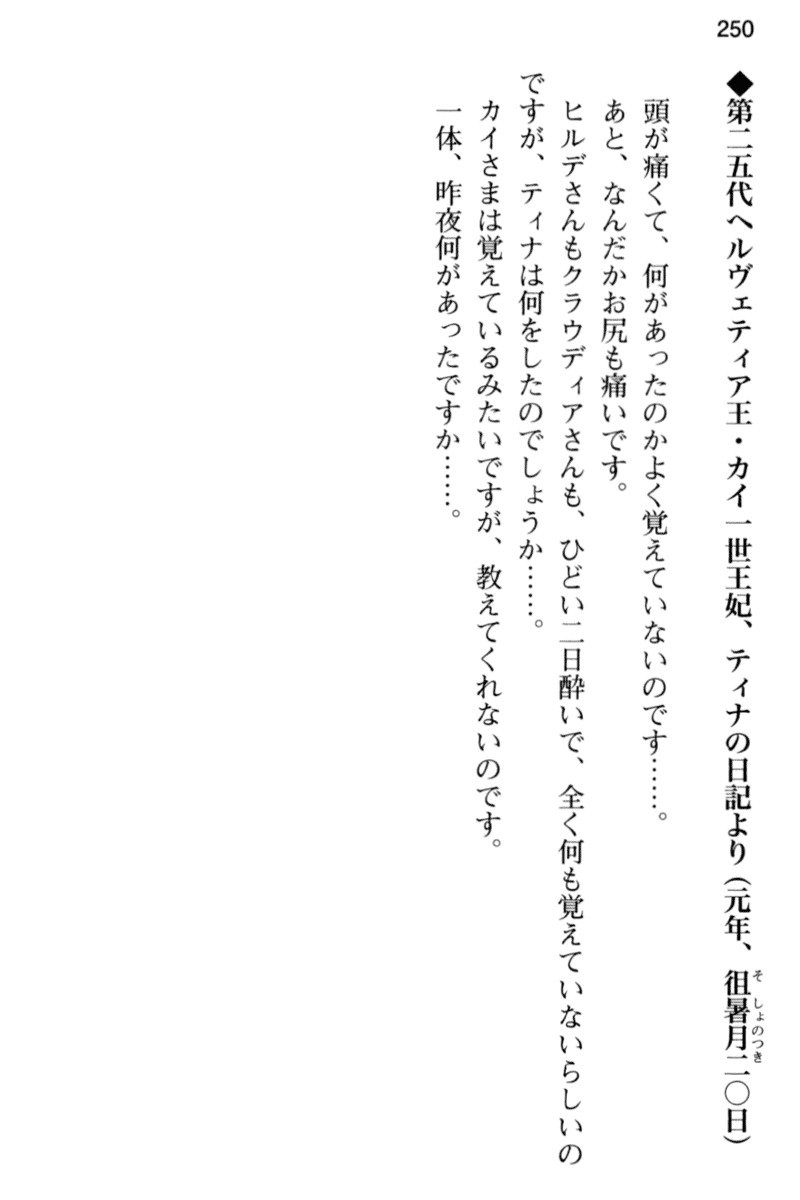 250
◆第二五代ヘルヴェティア王・カイ一世王妃、ティナの日記より(元年、徂暑月二〇日)
そしょのつき
頭が痛くて、何があったのかよく覚えていないのです……。
あと、なんだかお尻も痛いです。
ヒルデさんもクラウディアさんも、ひどい二日酔いで、全く何も覚えていないらしいの
ですが、ティナは何をしたのでしょうか……。
カイさまは覚えているみたいですが、教えてくれないのです。
一体、昨夜何があったですか……。